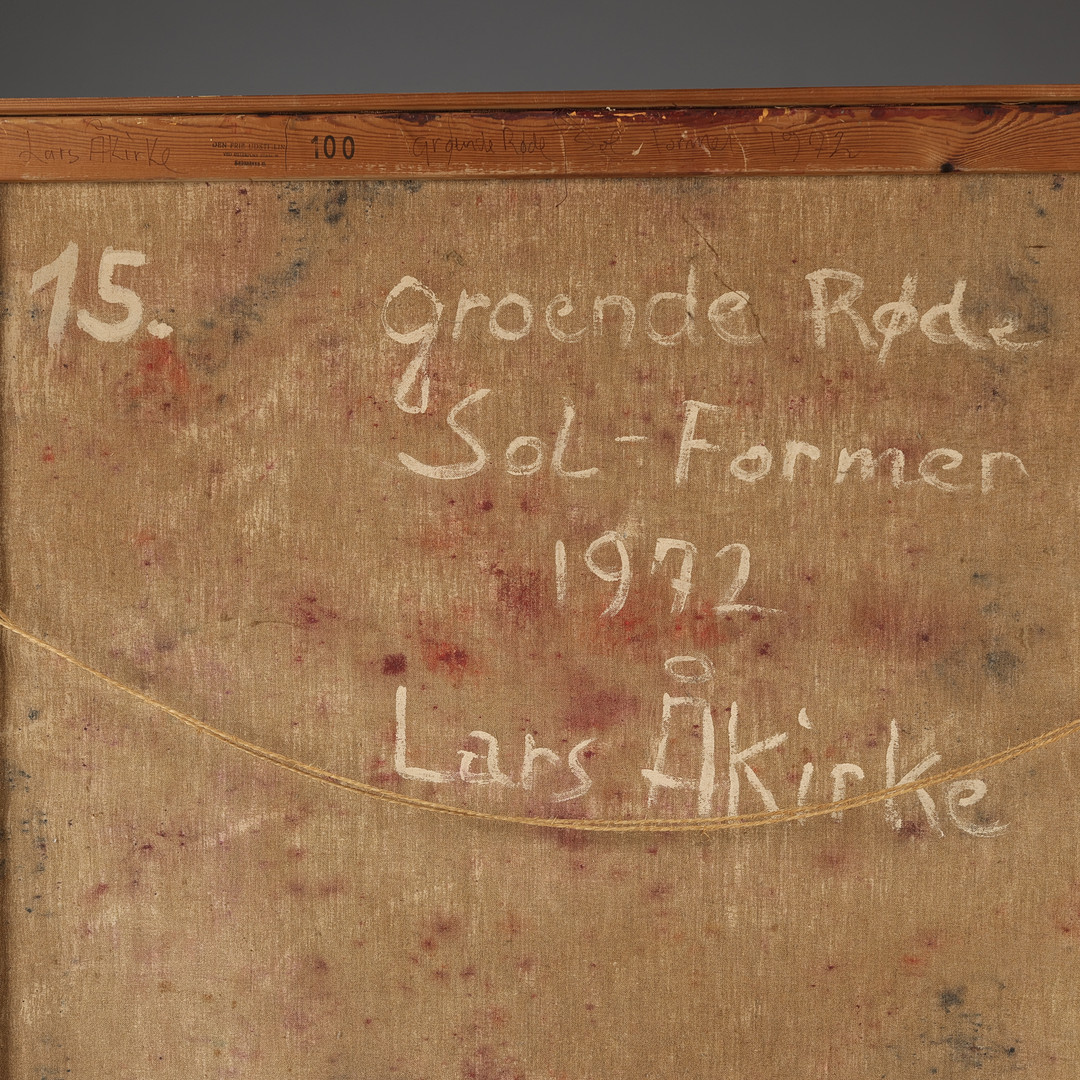 Lars Åkirke DEN FRIE UDSTILLING 100 Groende Røde Sol-Former 1972
15. groende Røde
Sol-Former
1972
Lars Åkirke